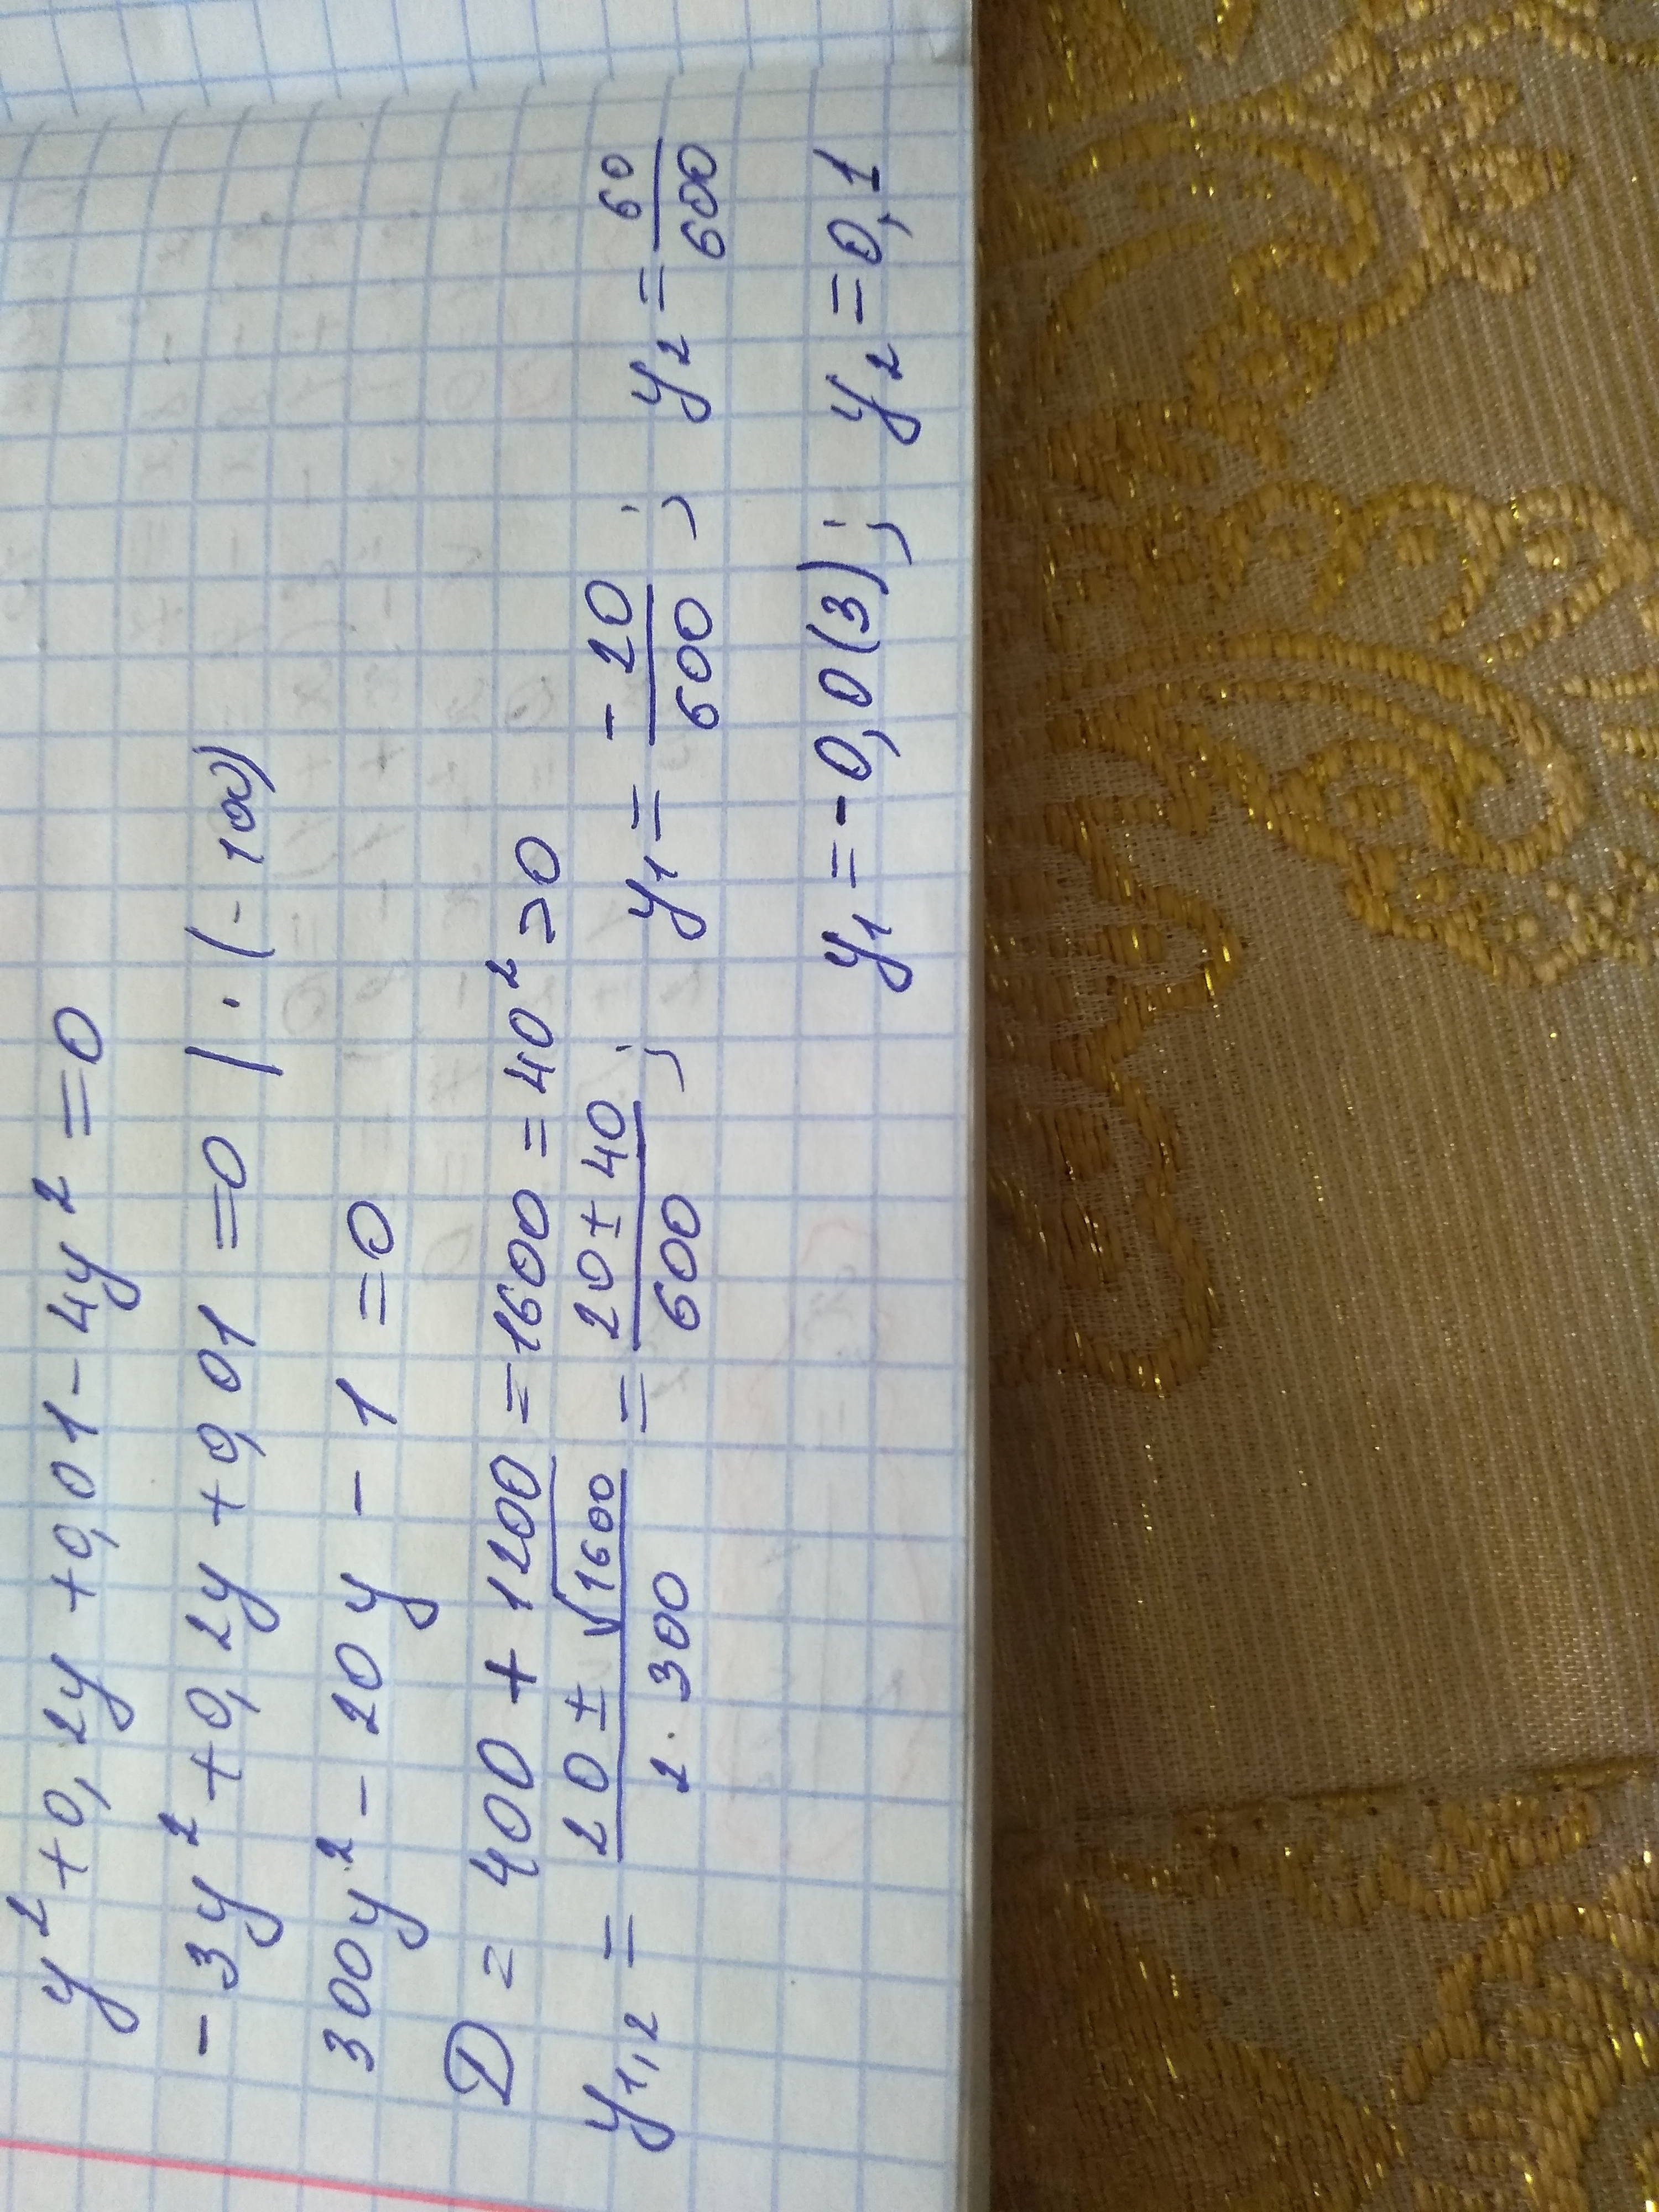 y² + 0,2y + 0,01 - 4y² = 0
- 3y² + 0,2y + 0,01 = 0 | · (- 100)
300y² - 20y - 1 = 0
D = 400 + 1200 = 1600 = 40² > 0
y₁,₂ = (20 ± √1600)/(2 · 300) = (20 ± 40)/600 ; y₁ = (-20)/600 ; y₂ = 60/600
y₁ = -0,0(3) ; y₂ = 0,1